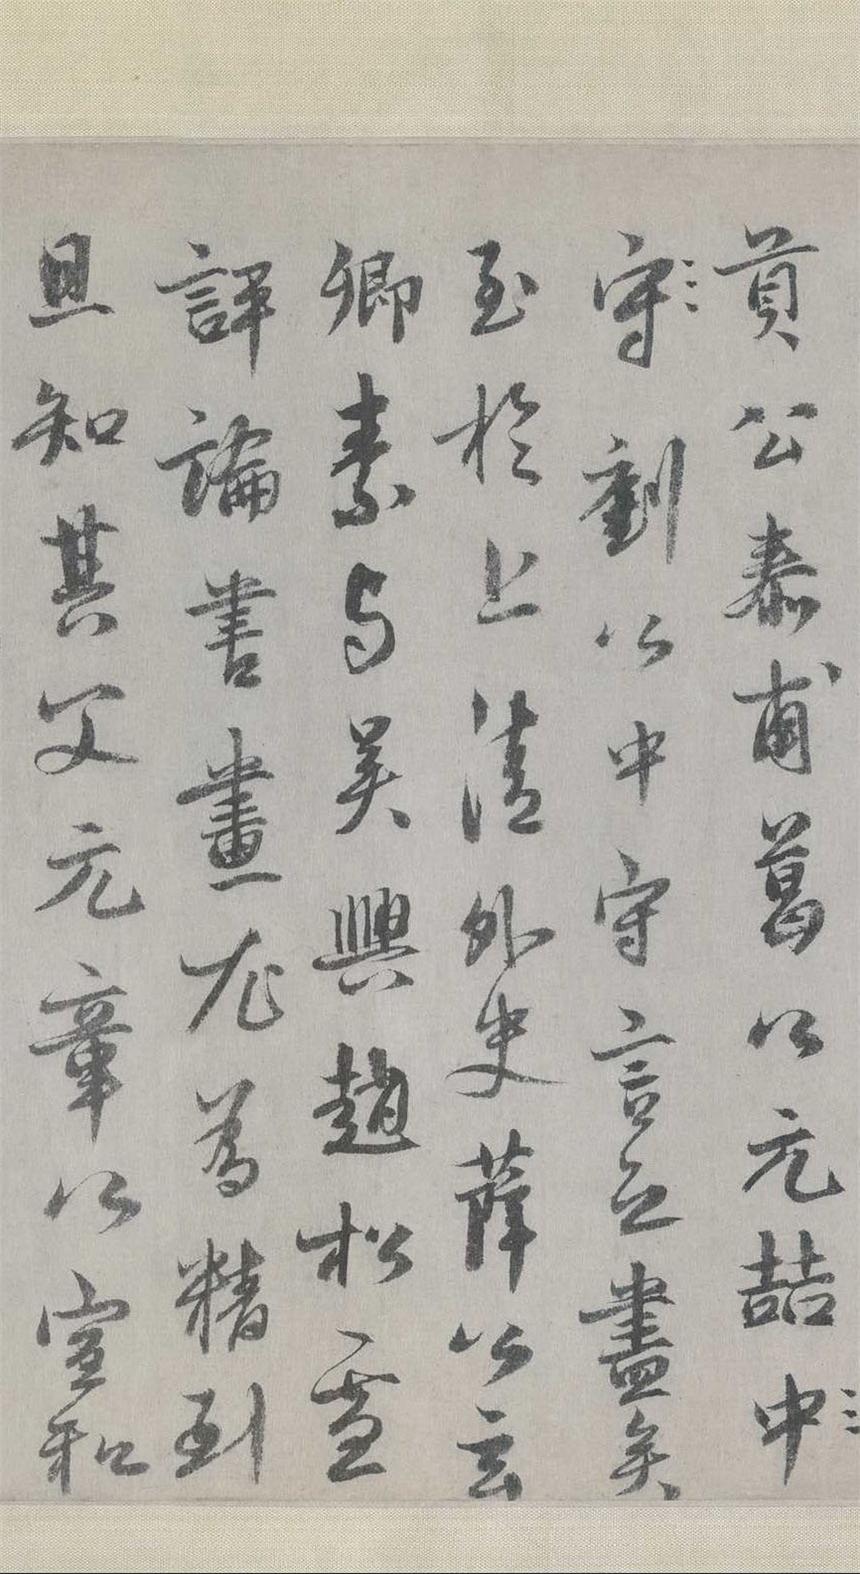 貢公泰甫葛公元喆中
守劉公中守言之盡矣
至於上清外史薛公玄
卿素与吴興趙松雪
評論書畫尤為精到
且知其父元章公宣和